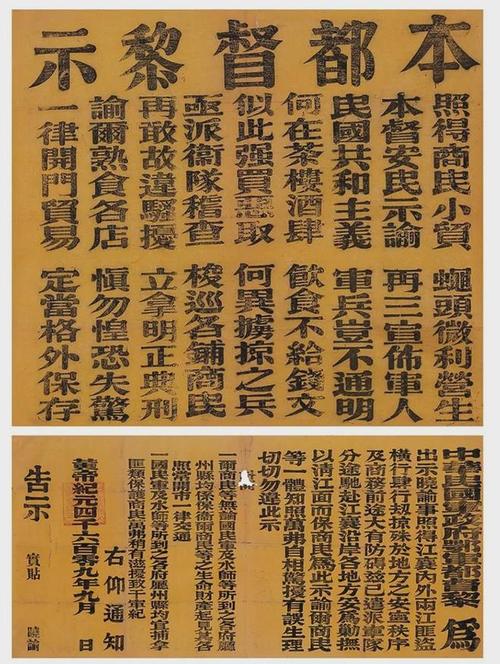 本都督黎示
照得商民小貿 蠅頭微利營生
本督安民示諭 再三宣佈軍人
民國共和主義 軍兵豈不通明
何在茶樓酒肆 飲食不給錢文
似此强買惡取 何異擄掠之兵
亟派衛隊稽查 梭巡各鋪商民
再敢故違騷擾 立拿明正典刑
諭爾熟食各店 愼勿惶恐失驚
一律開門貿易 定當格外保存
中華民國軍政府鄂都督黎 爲
出示曉諭事照得江襄內外兩江匪盜
橫行肆行刼掠殊於地方之安寧秩序
及商務前途大有防碍茲已遣派軍隊
分途馳赴江襄沿岸各地方安爲勦撫
以清江面而保商民爲此示諭爾商民
等一體知照萬弗自相驚擾有誤生理
切切勿違此示
一爾商民等無論國民軍及水師等所到之各府廳
州縣均係保衛爾商民等之生命財產起見其各
照常開市一律交通
一國民軍及水師等所到之各府廳州縣均宜捕拿
匪類保護商民萬弗稍有滋擾致干軍紀
右仰通知
黃帝紀元四千六百零九年九月 日
告示 實貼 曉諭